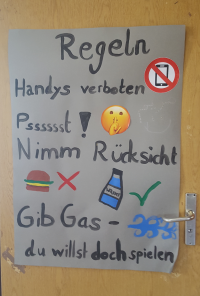 Regeln
Handys verboten
Psssssst !
Nimm Rücksicht
Gib Gas -
du willst doch spielen